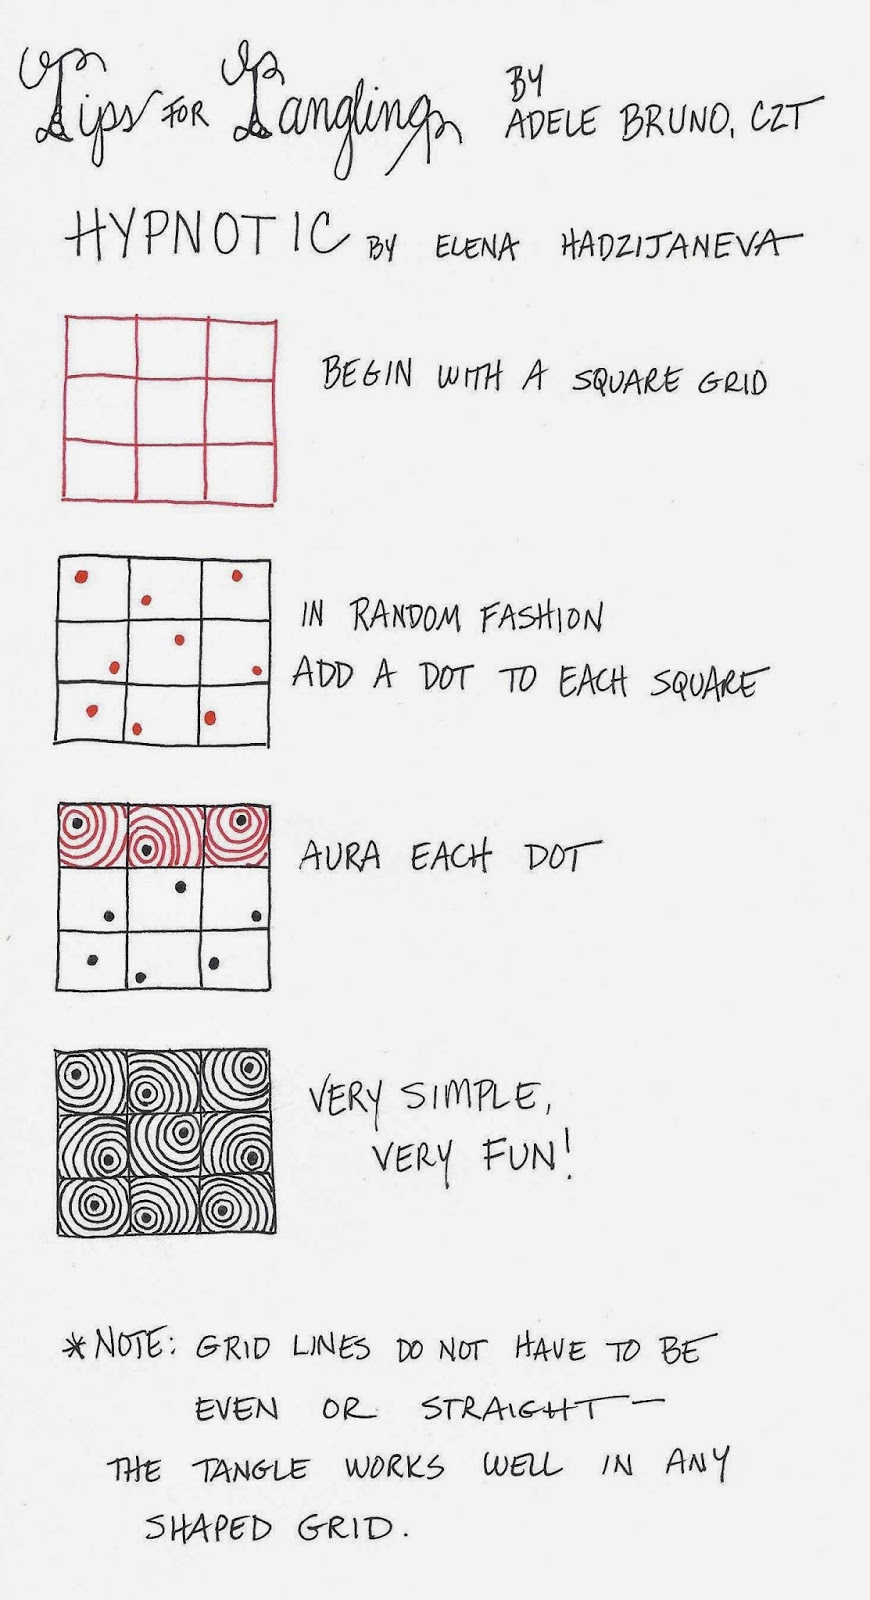 Tips FOR Tangling BY
ADELE BRUNO, CZT
HYPNOTIC BY ELENA HADZIJANEVA
BEGIN WITH A SQUARE GRID
IN RANDOM FASHION
ADD A DOT TO EACH SQUARE
AURA EACH DOT
VERY SIMPLE,
VERY FUN!
*NOTE: GRID LINES DO NOT HAVE TO BE
EVEN OR STRAIGHT—
THE TANGLE WORKS WELL IN ANY
SHAPED GRID.